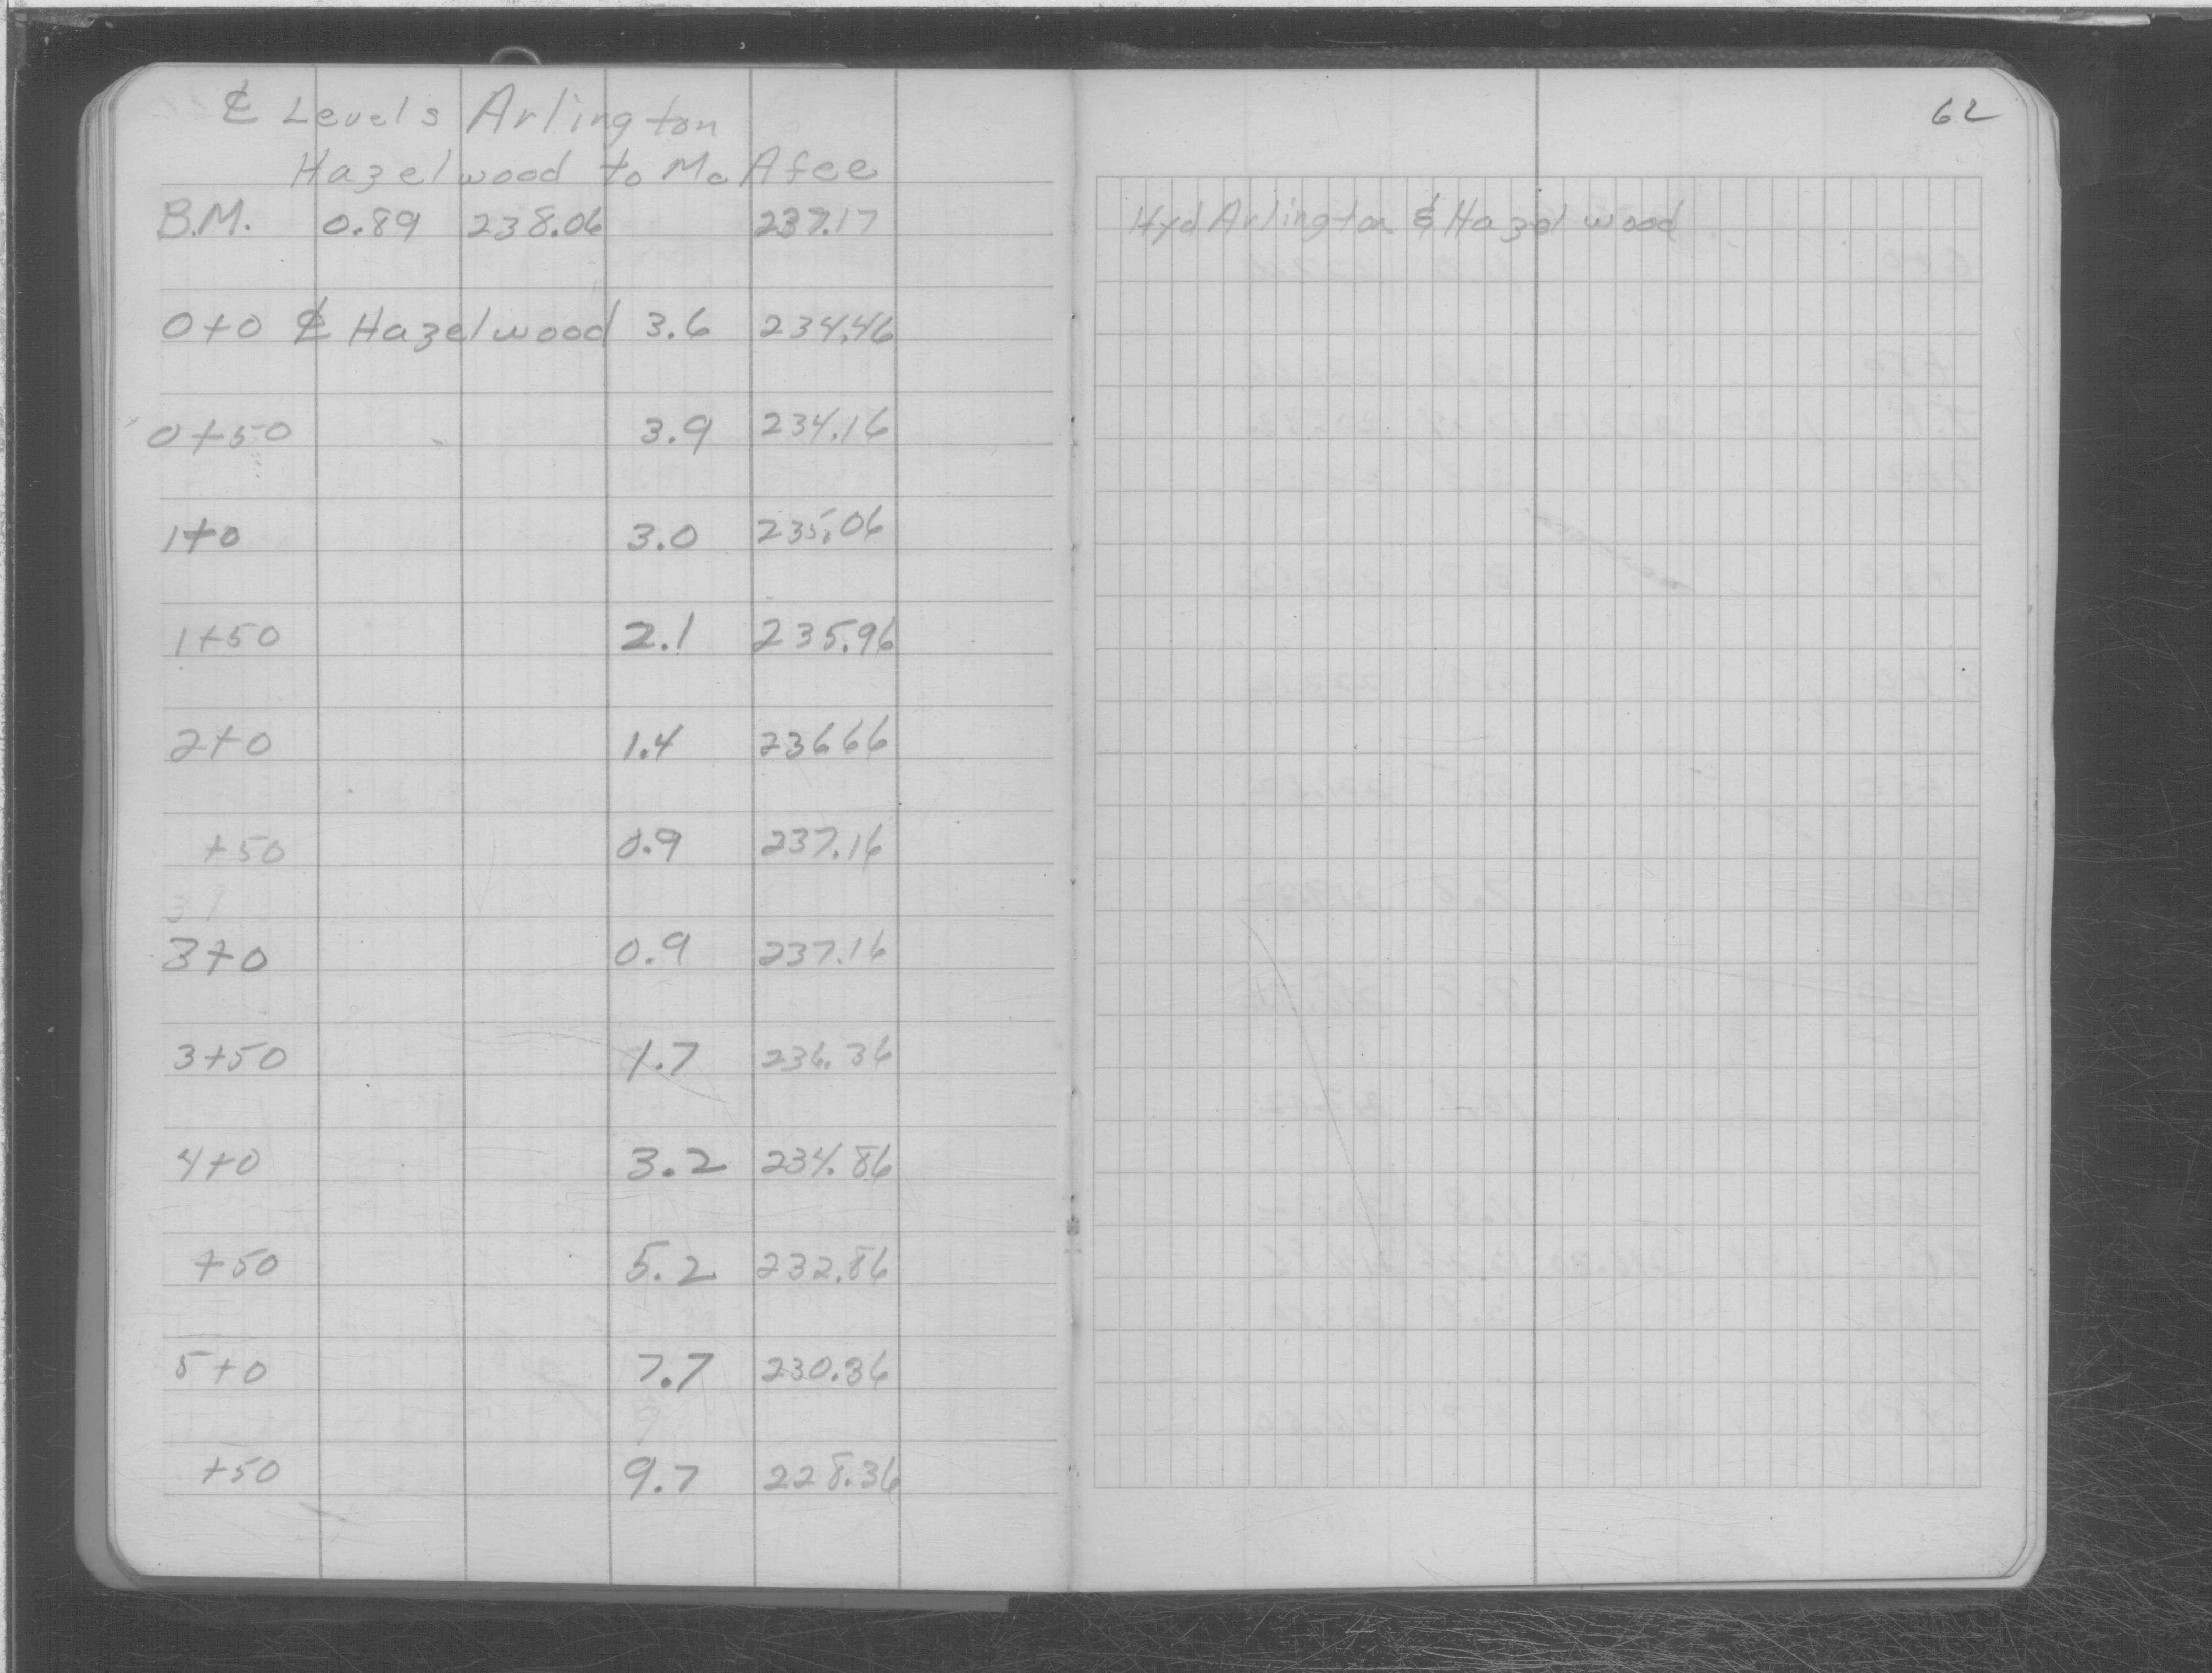 ℄ Levels Arlington
Hazelwood to McAfee
B.M. 0.89 238.06 237.17
0+0 ℄ Hazelwood 3.6 234.46
0+50 3.9 234.16
1+0 3.0 235.06
1+50 2.1 235.96
2+0 1.4 236.66
+50 0.9 237.16
3+0 0.9 237.16
3+50 1.7 236.36
4+0 3.2 234.86
+50 5.2 232.86
5+0 7.7 230.36
+50 9.7 228.36
62
Hyd Arlington & Hazelwood